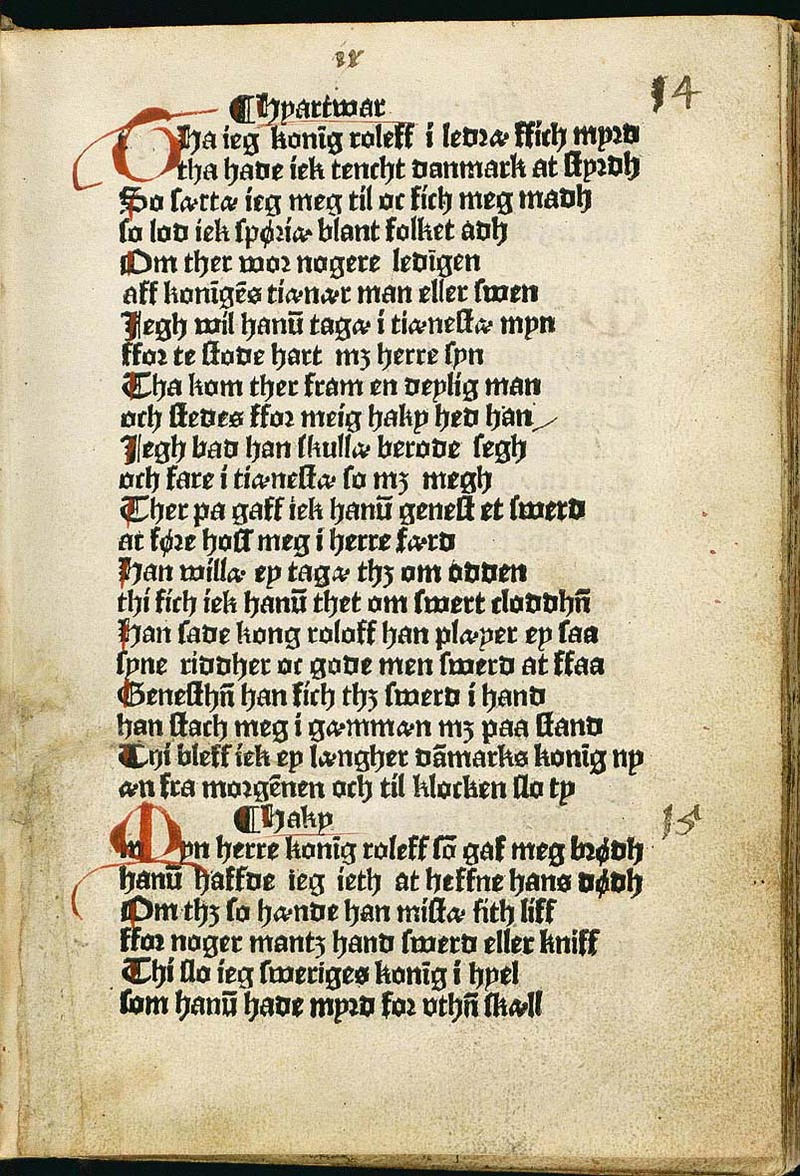 ix
14
¶ Hyartwar
Tha ieg konīg roleff i ledræ ffich myrd
tha hade iek tencht danmark at styrdh
So sættæ ieg meg til oc fich meg madh
so lod iek spøriæ blant folket adh
Om ther wor nogere ledīgen
aff konīgēs tiænær man eller swen
Jegh wil hanū tagæ i tiænestæ myn
ffor te stode hart mꝫ herre syn
Tha kom ther fram en deylig man
och stedes ffor meig haky hed han
Jegh bad han skullæ berode segh
och fare i tiænestæ so mꝫ megh
Ther pa gaff iek hanū genest et swerd
at føre hoss meg i herre færd
Han willæ ey tagæ thꝫ om odden
thi fich iek hanū thet om swert cloddhn̄
Han sade kong roloff han plæyer ey saa
syne riddher oc gode men swerd at ffaa
Genesthn̄ han fich thꝫ swerd i hand
han stach meg i gæmmæn mꝫ paa stand
Thi bleff iek ey længher dāmarks konīg ny
æn fra morgēnen och til klocken slo ty
¶ Haky
15
Myn herre konīg roleff sō gaf meg brødh
hanū haffde ieg ieth at heffne hans dødh
Om thꝫ so hænde han mistæ sith liff
ffor noger mantꝫ hand swerd eller kniff
Thi slo ieg sweriges konīg i hyel
som hanū hade myrd for vthn̄ skæll